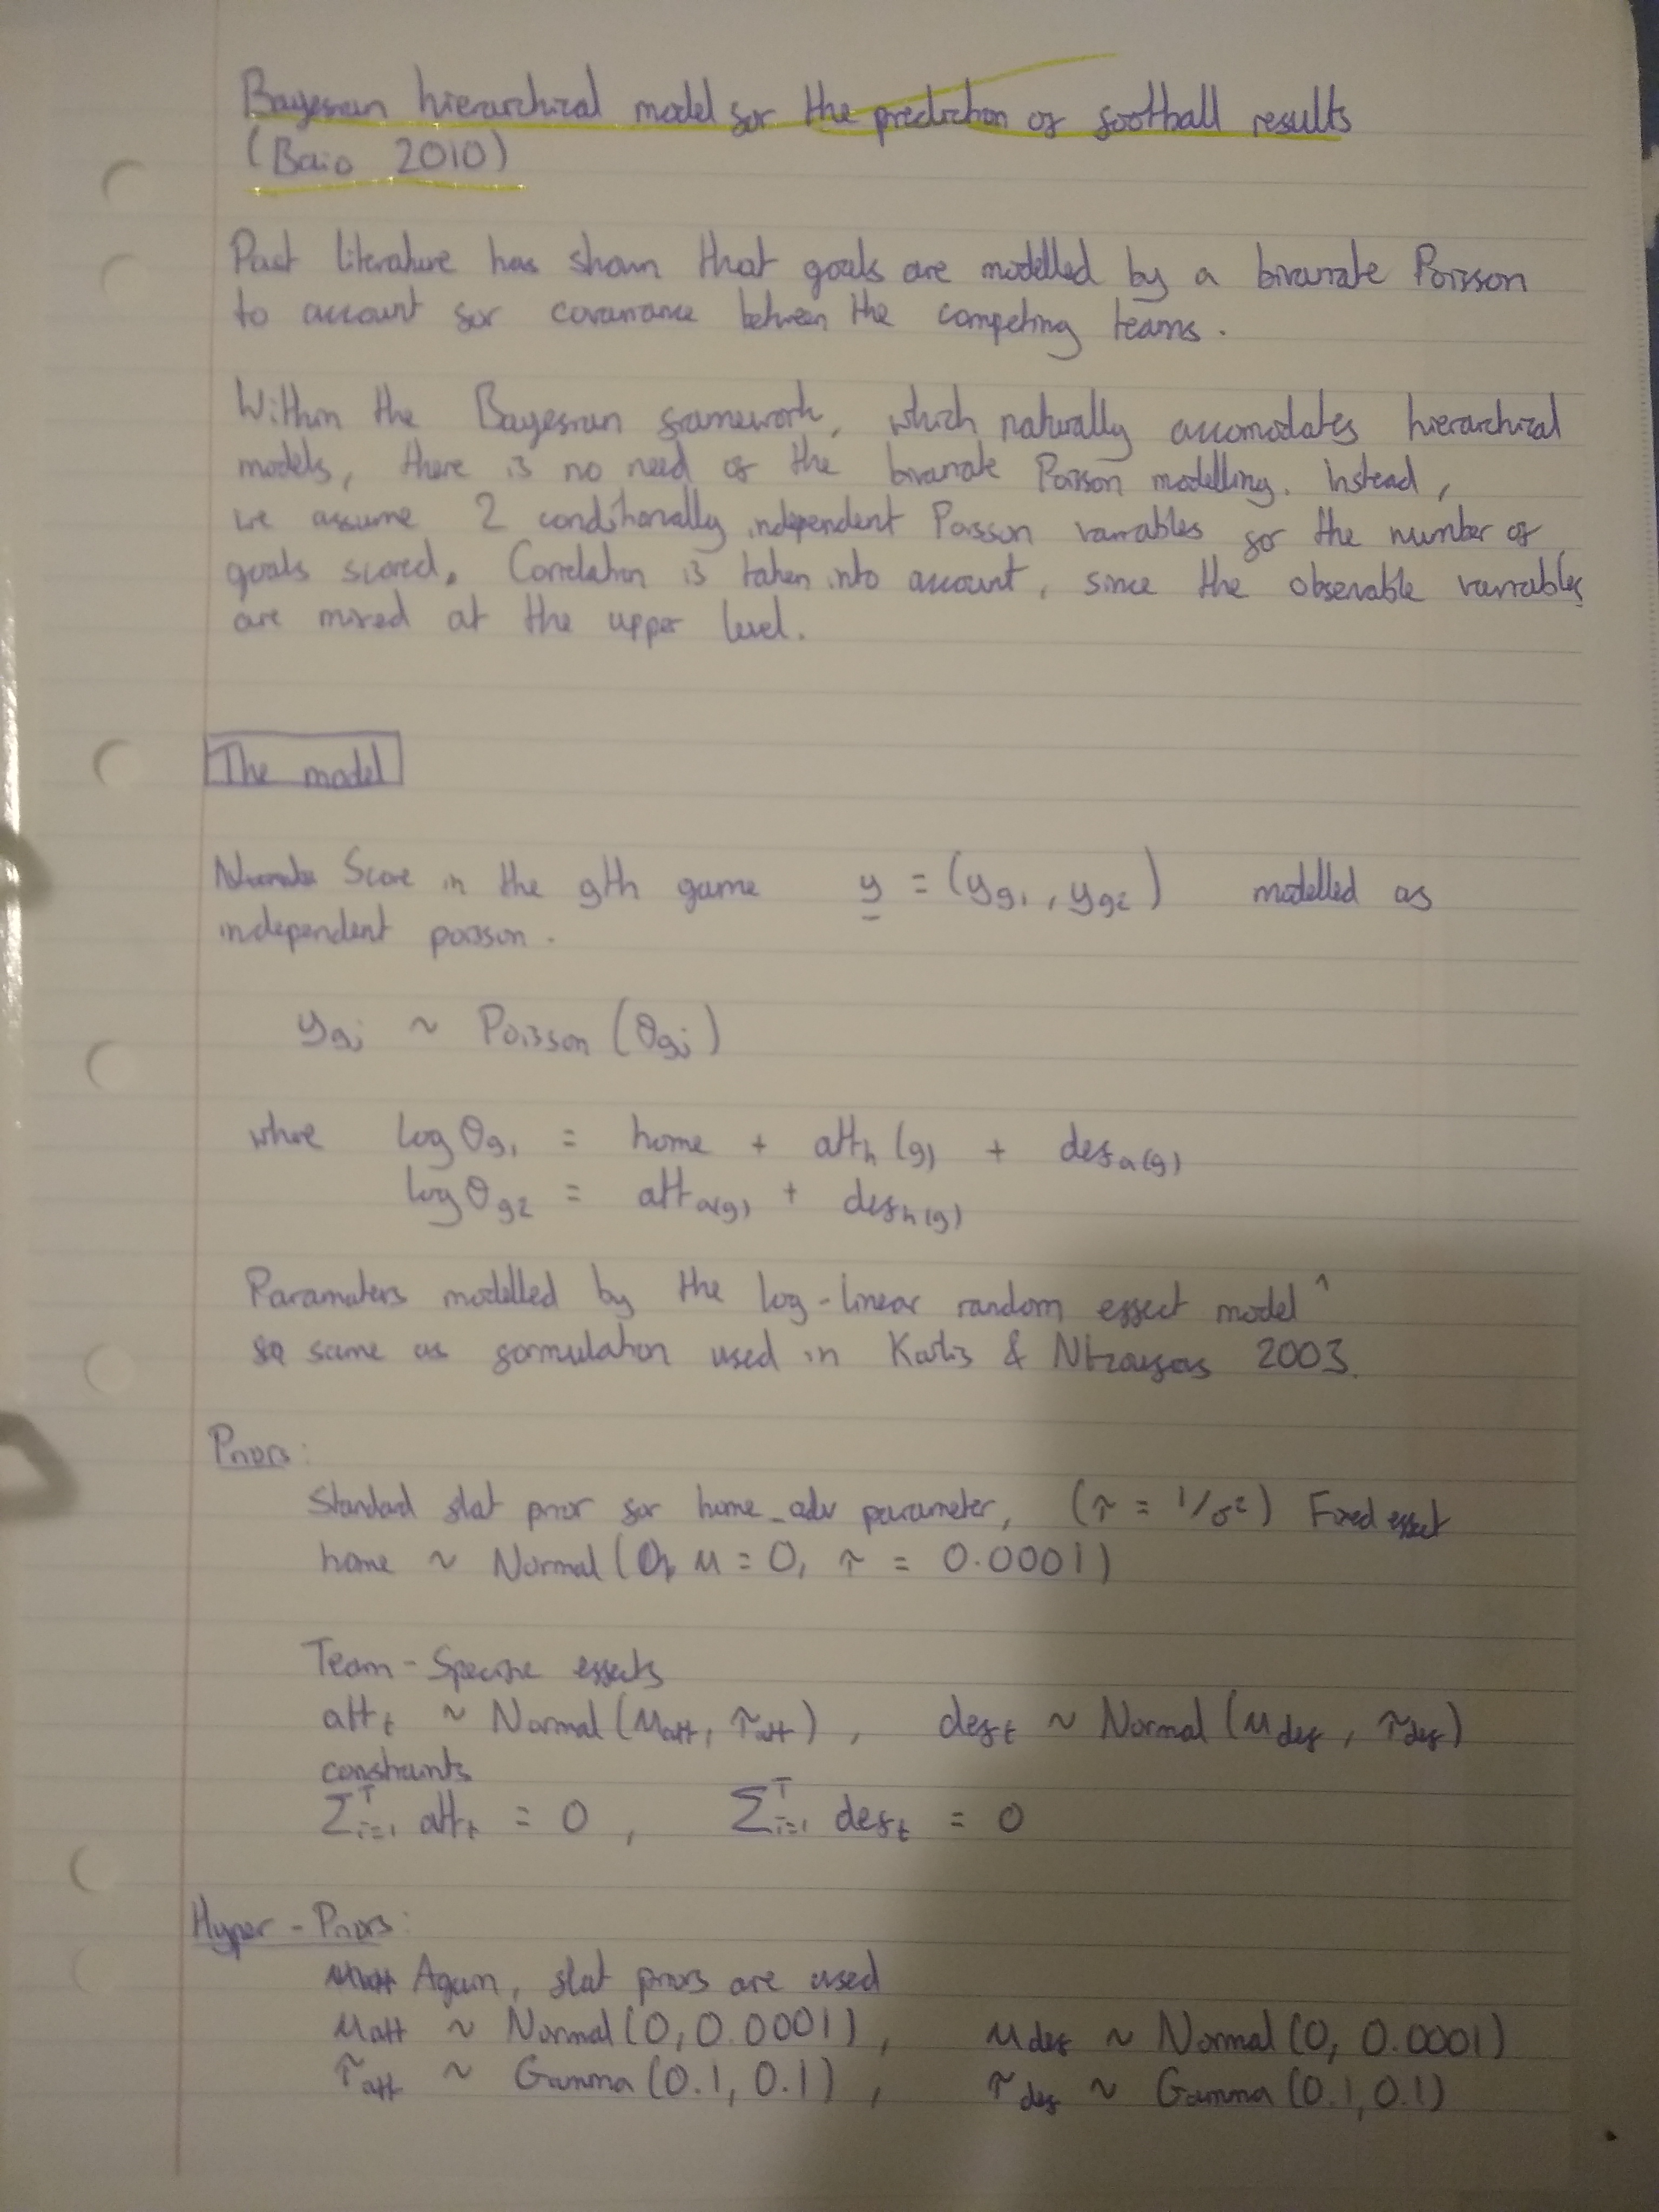 Bayesian hierarchical model for the prediction of football results
(Baio 2010)
Past literature has shown that goals are modelled by a bivariate Poisson
to account for covariance between the competing teams.
Within the Bayesian framework, which naturally accomodates hierarchical
models, there is no need of the bivariate Poisson modelling. Instead,
we assume 2 conditionally independent Poisson variables for the number of
goals scored. Correlation is taken into account, since the observable variables
are mixed at the upper level.
The model
Score in the gth game y = (y_g1, y_g2) modelled as
independent poisson.
y_gj ~ Poisson (θ_gj)
where log θ_g1 = home + att_h(g) + def_a(g)
log θ_g2 = att_a(g) + def_h(g)
Paramaters modelled by the log-linear random effect model ^
same as formulation used in Karlis & Ntzoufas 2003.
Priors:
Standard flat prior for home_adv parameter, (τ = 1/σ²) Fixed effect
home ~ Normal (μ = 0, τ = 0.0001)
Team-Specific effects
att_t ~ Normal (μ_att, τ_att), def_t ~ Normal (μ_def, τ_def)
constraints
Σ_{i=1}^T att_t = 0, Σ_{i=1}^T def_t = 0
Hyper-Priors:
Again, flat priors are used
μ_att ~ Normal (0, 0.0001), μ_def ~ Normal (0, 0.0001)
τ_att ~ Gamma (0.1, 0.1), τ_def ~ Gamma (0.1, 0.1)